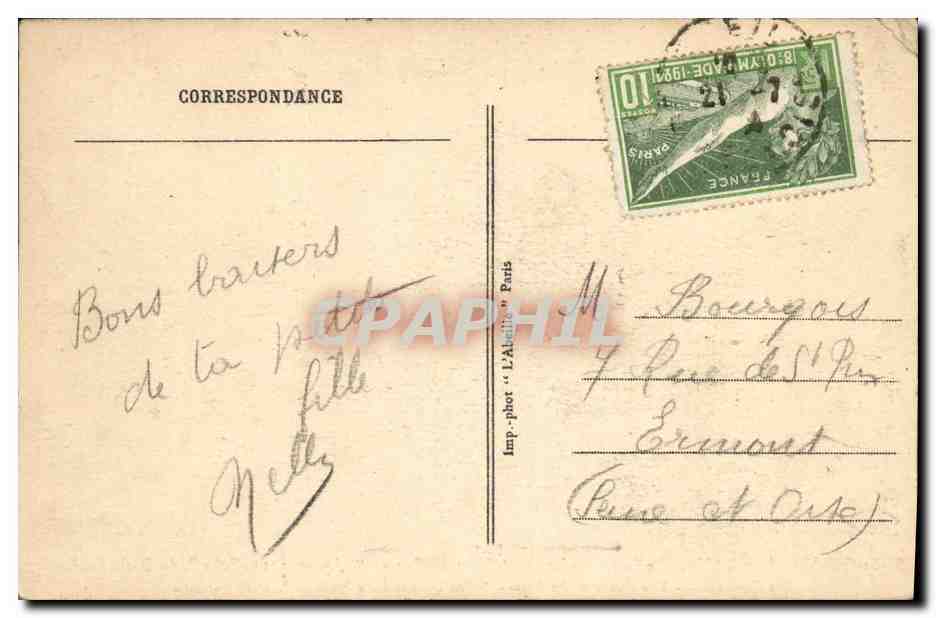 CORRESPONDANCE
Bons baisers
de ta petite
fille
Nelly
Imp.-phot "L'Abeille" Paris
10
POSTES
8e OLYMPIADE-1924
PARIS
FRANCE
21
Me Bourgois
7 Rue de St Prix
Ermont
(Seine et Oise)
CPAPHIL